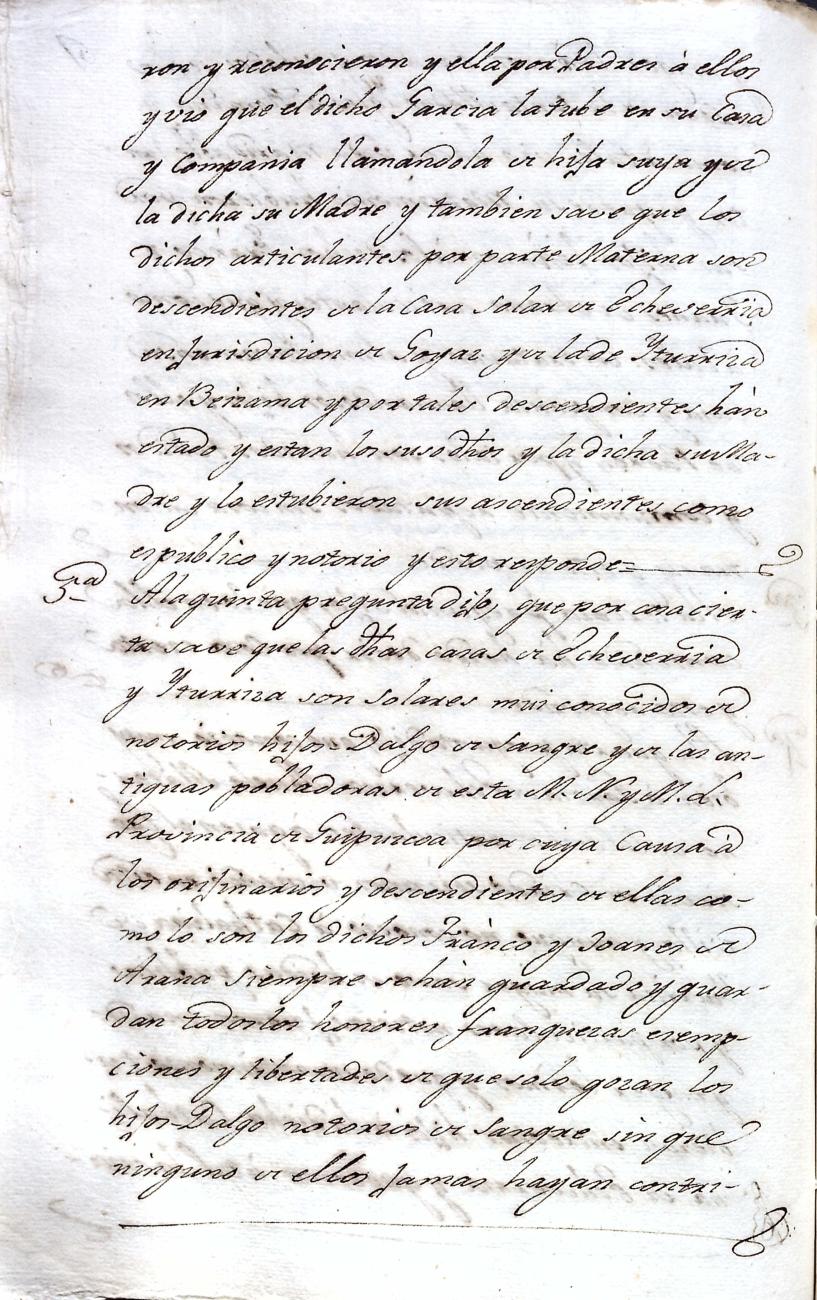 ron y reconocieron y ella por Padres à ellos
y vio que el dicho Garcia la tube en su Casa
y Compañia llamandola de hija suya y de
la dicha su Madre y tambien save que los
dichos articulantes por parte Materna son
descendientes de la Casa Solar de Echeverria
en Jurisdicion de Goyaz y de la de Yturriza
en Beizama y por tales descendientes hàn
estado y estan los susodhos y la dicha su Ma-
dre y lo estubieron sus ascendientes como
es publico y notorio y esto responde=
5.ª A la quinta pregunta dijo, que por cosa cier-
ta save que las dhas casas de Echeverria
y Yturriza son Solares mui conocidos de
notorios hijos=Dalgo de Sangre y de las an-
tiguas pobladoras de esta M. N. y M. L.
Provincia de Guipuzcoa por cuya Causa à
los orijinarios y descendientes de ellas co-
mo lo son los dichos Frànco y Joanes de
Arana siempre se hàn guardado y guar-
dan todos los honores franquezas exemp-
ciones y libertades de que solo gozan los
hijos-Dalgo notorios de Sangre sin que
ninguno de ellos Jamas hayan contri-